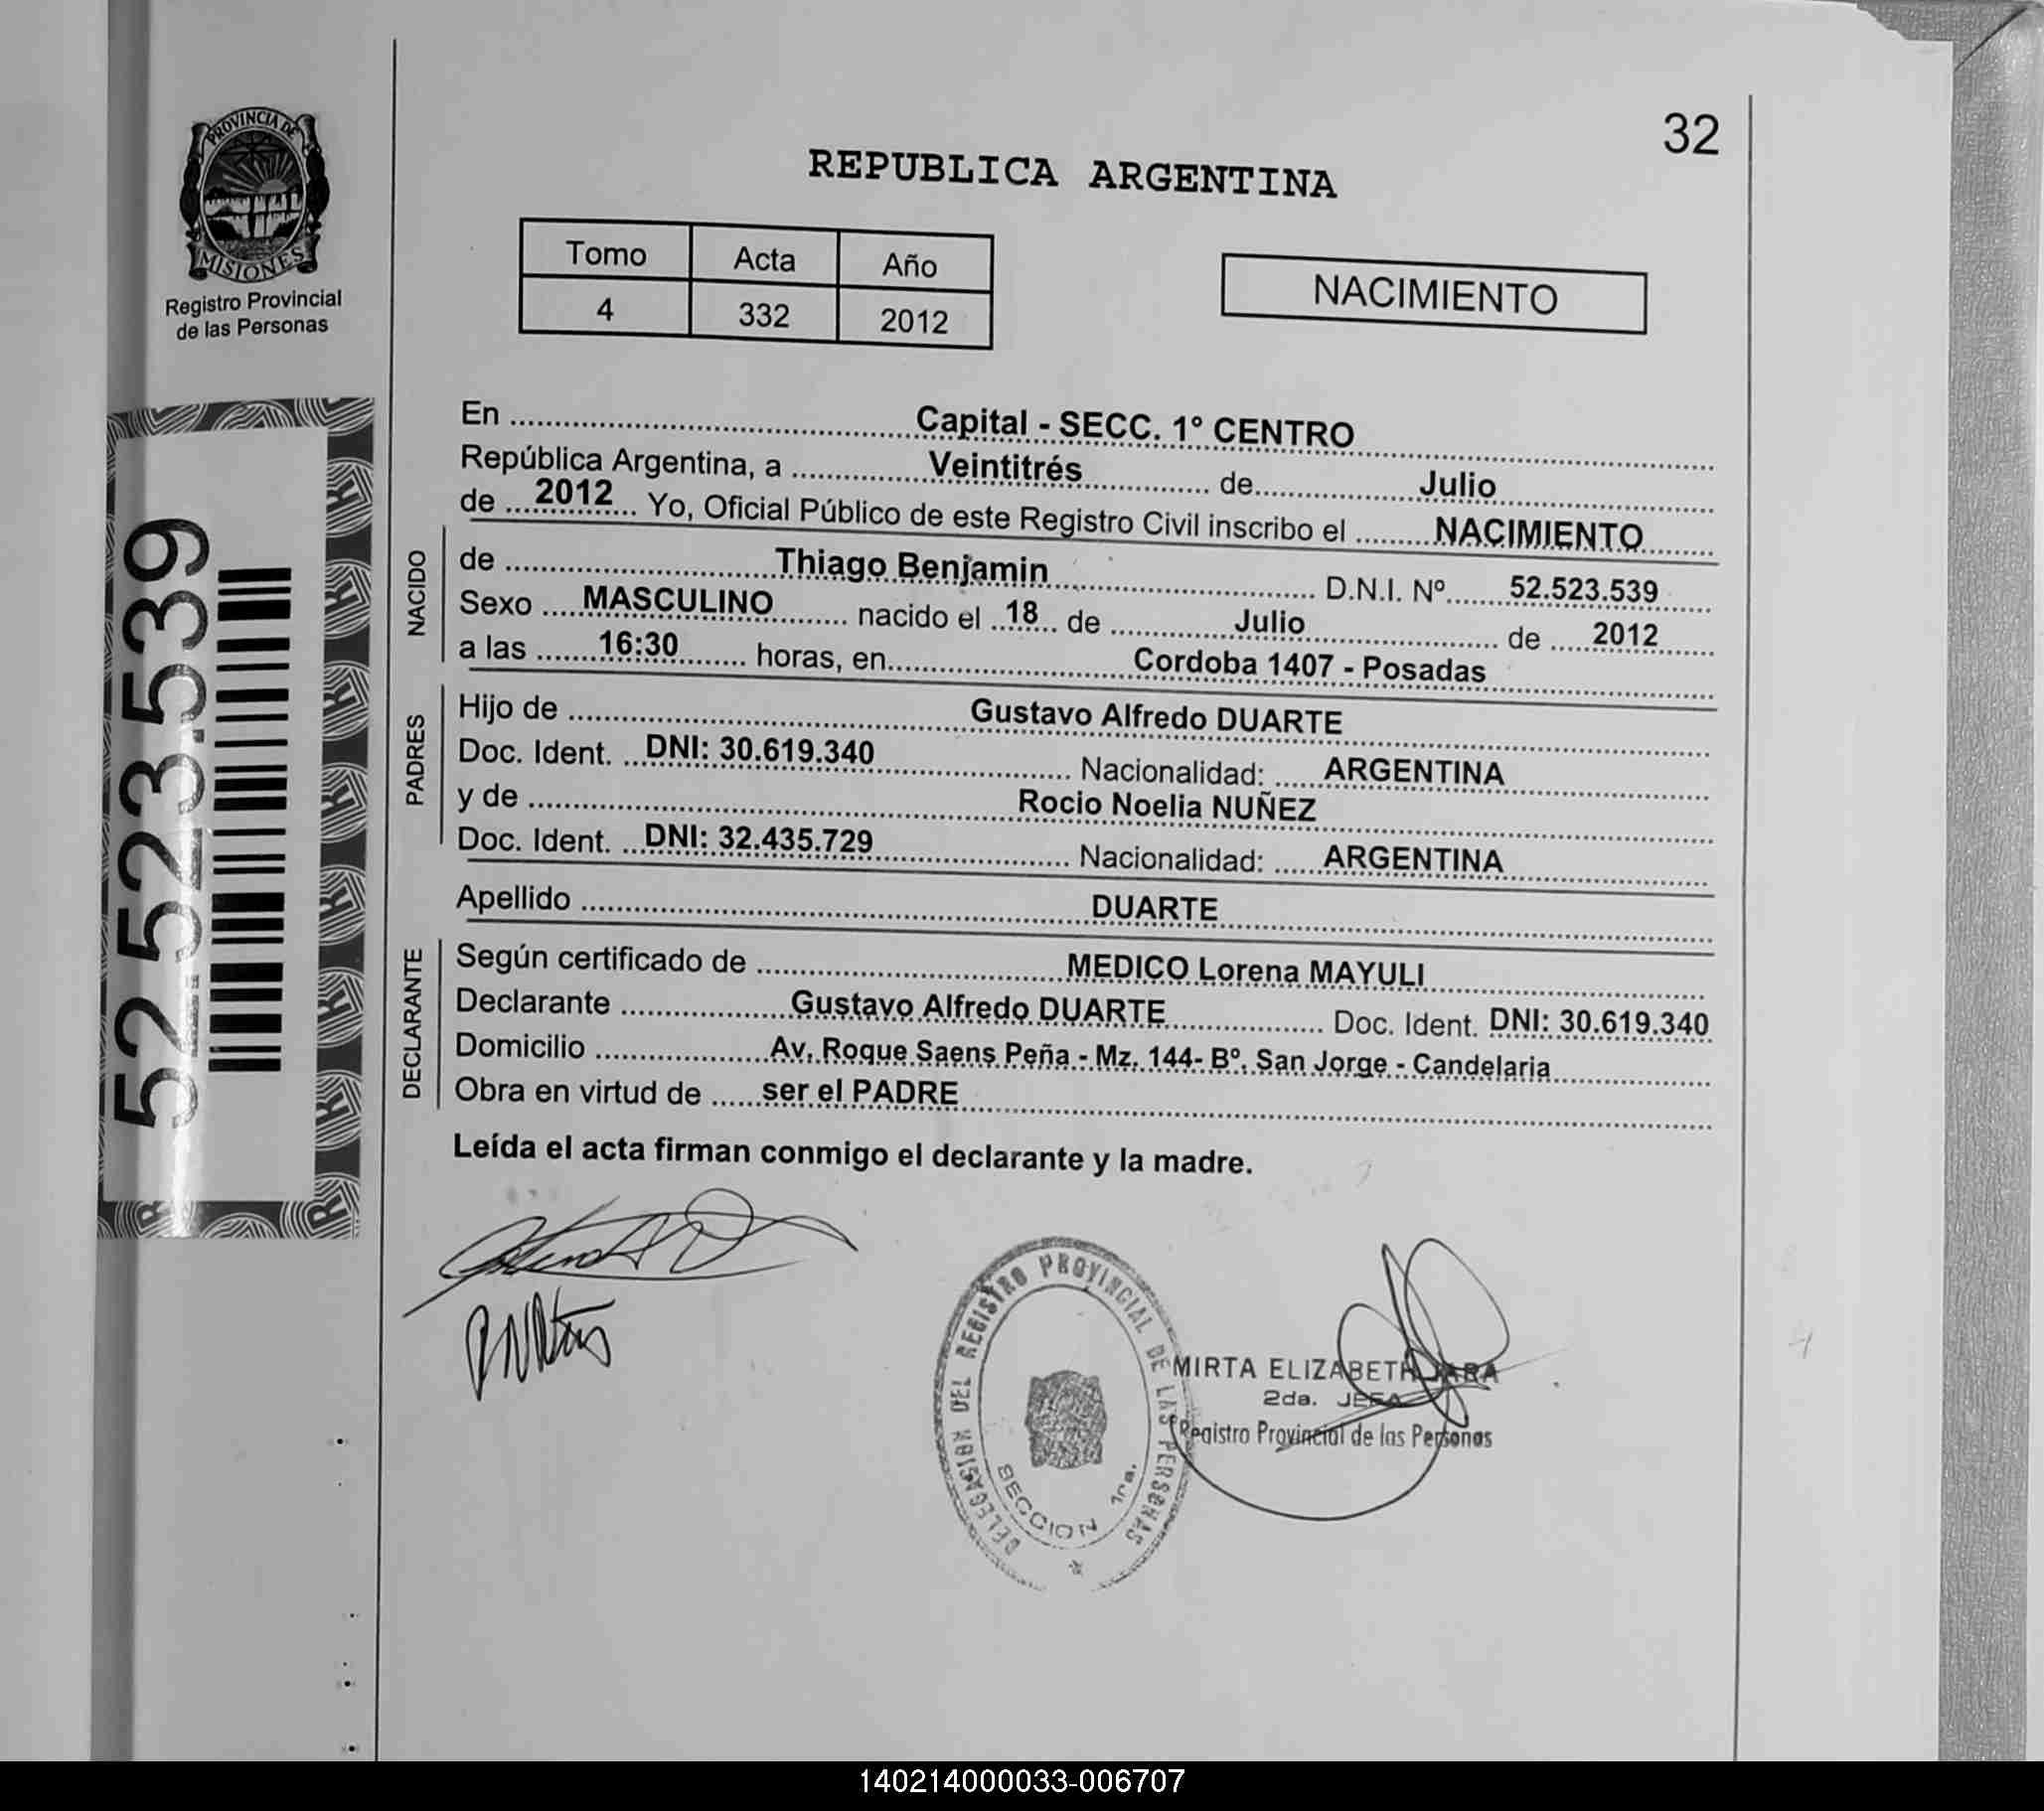 32
REPUBLICA ARGENTINA
PROVINCIA DE
MISIONES
Registro Provincial
de las Personas
Tomo Acta Año
4 332 2012
NACIMIENTO
52.523.539
En ........ Capital - SECC. 1° CENTRO
República Argentina, a ........ Veintitrés ........ de ........ Julio
de ... 2012 ... Yo, Oficial Público de este Registro Civil inscribo el ........ NACIMIENTO
NACIDO
de ........ Thiago Benjamin ........ D.N.I. Nº ...... 52.523.539
Sexo .... MASCULINO ........ nacido el .. 18 .. de ........ Julio ........ de .... 2012
a las ...... 16:30 ...... horas, en ........ Cordoba 1407 - Posadas
PADRES
Hijo de ........ Gustavo Alfredo DUARTE
Doc. Ident. ... DNI: 30.619.340 ........ Nacionalidad: ..... ARGENTINA
y de ........ Rocio Noelia NUÑEZ
Doc. Ident. ... DNI: 32.435.729 ........ Nacionalidad: ..... ARGENTINA
Apellido ........ DUARTE
DECLARANTE
Según certificado de ........ MEDICO Lorena MAYULI
Declarante ........ Gustavo Alfredo DUARTE ........ Doc. Ident. DNI: 30.619.340
Domicilio ........ Av. Roque Saens Peña - Mz. 144- Bº. San Jorge - Candelaria
Obra en virtud de ...... ser el PADRE
Leída el acta firman conmigo el declarante y la madre.
DELEGACION DEL REGISTRO PROVINCIAL DE LAS PERSONAS
SECCION 1ra.
MIRTA ELIZABETH JARA
2da. JEFA
Registro Provincial de las Personas
140214000033-006707